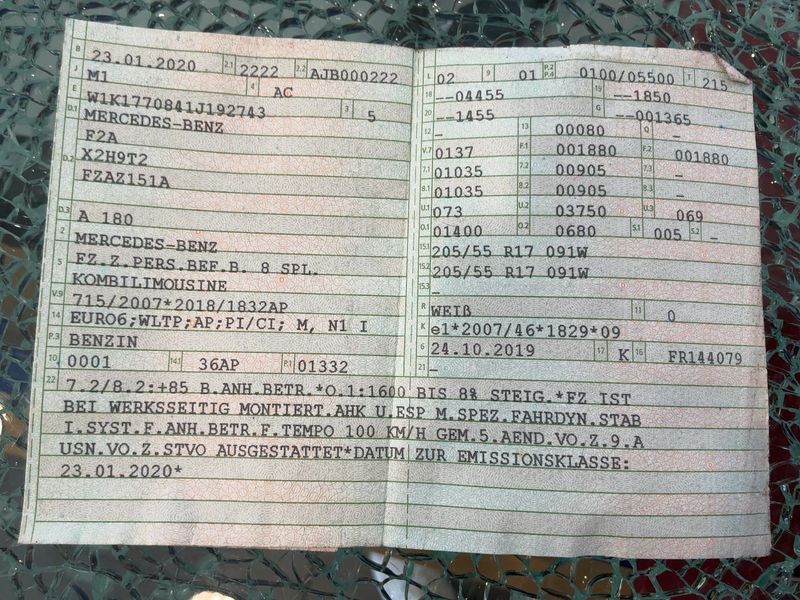 B 23.01.2020 2.1 2222 2.2 AJB000222
J M1 4 AC
E W1K1770841J192743 3 5
D.1 MERCEDES-BENZ
F2A
D.2 X2H9T2
FZAZ151A
D.3 A 180
2 MERCEDES-BENZ
5 FZ.Z.PERS.BEF.B. 8 SPL.
KOMBILIMOUSINE
V.9 715/2007*2018/1832AP
14 EURO6;WLTP;AP;PI/CI; M, N1 I
P.3 BENZIN
10 0001 14.1 36AP P.1 01332
L 02 9 01 P.2 P.4 0100/05500 T 215
18 --04455 19 --1850
20 --1455 G --001365
12 - 13 00080 Q -
V.7 0137 F.1 001880 F.2 001880
7.1 01035 7.2 00905 7.3 -
8.1 01035 8.2 00905 8.3 -
U.1 073 U.2 03750 U.3 069
O.1 01400 O.2 0680 S.1 005 S.2 -
15.1 205/55 R17 091W
15.2 205/55 R17 091W
15.3 -
R WEIß 11 0
K e1*2007/46*1829*09
6 24.10.2019 17 K 16 FR144079
21 -
22 7.2/8.2:+85 B.ANH.BETR.*O.1:1600 BIS 8% STEIG.*FZ IST
BEI WERKSSEITIG MONTIERT.AHK U.ESP M.SPEZ.FAHRDYN.STAB
I.SYST.F.ANH.BETR.F.TEMPO 100 KM/H GEM.5.AEND.VO.Z.9.A
USN.VO.Z.STVO AUSGESTATTET*DATUM ZUR EMISSIONSKLASSE:
23.01.2020*